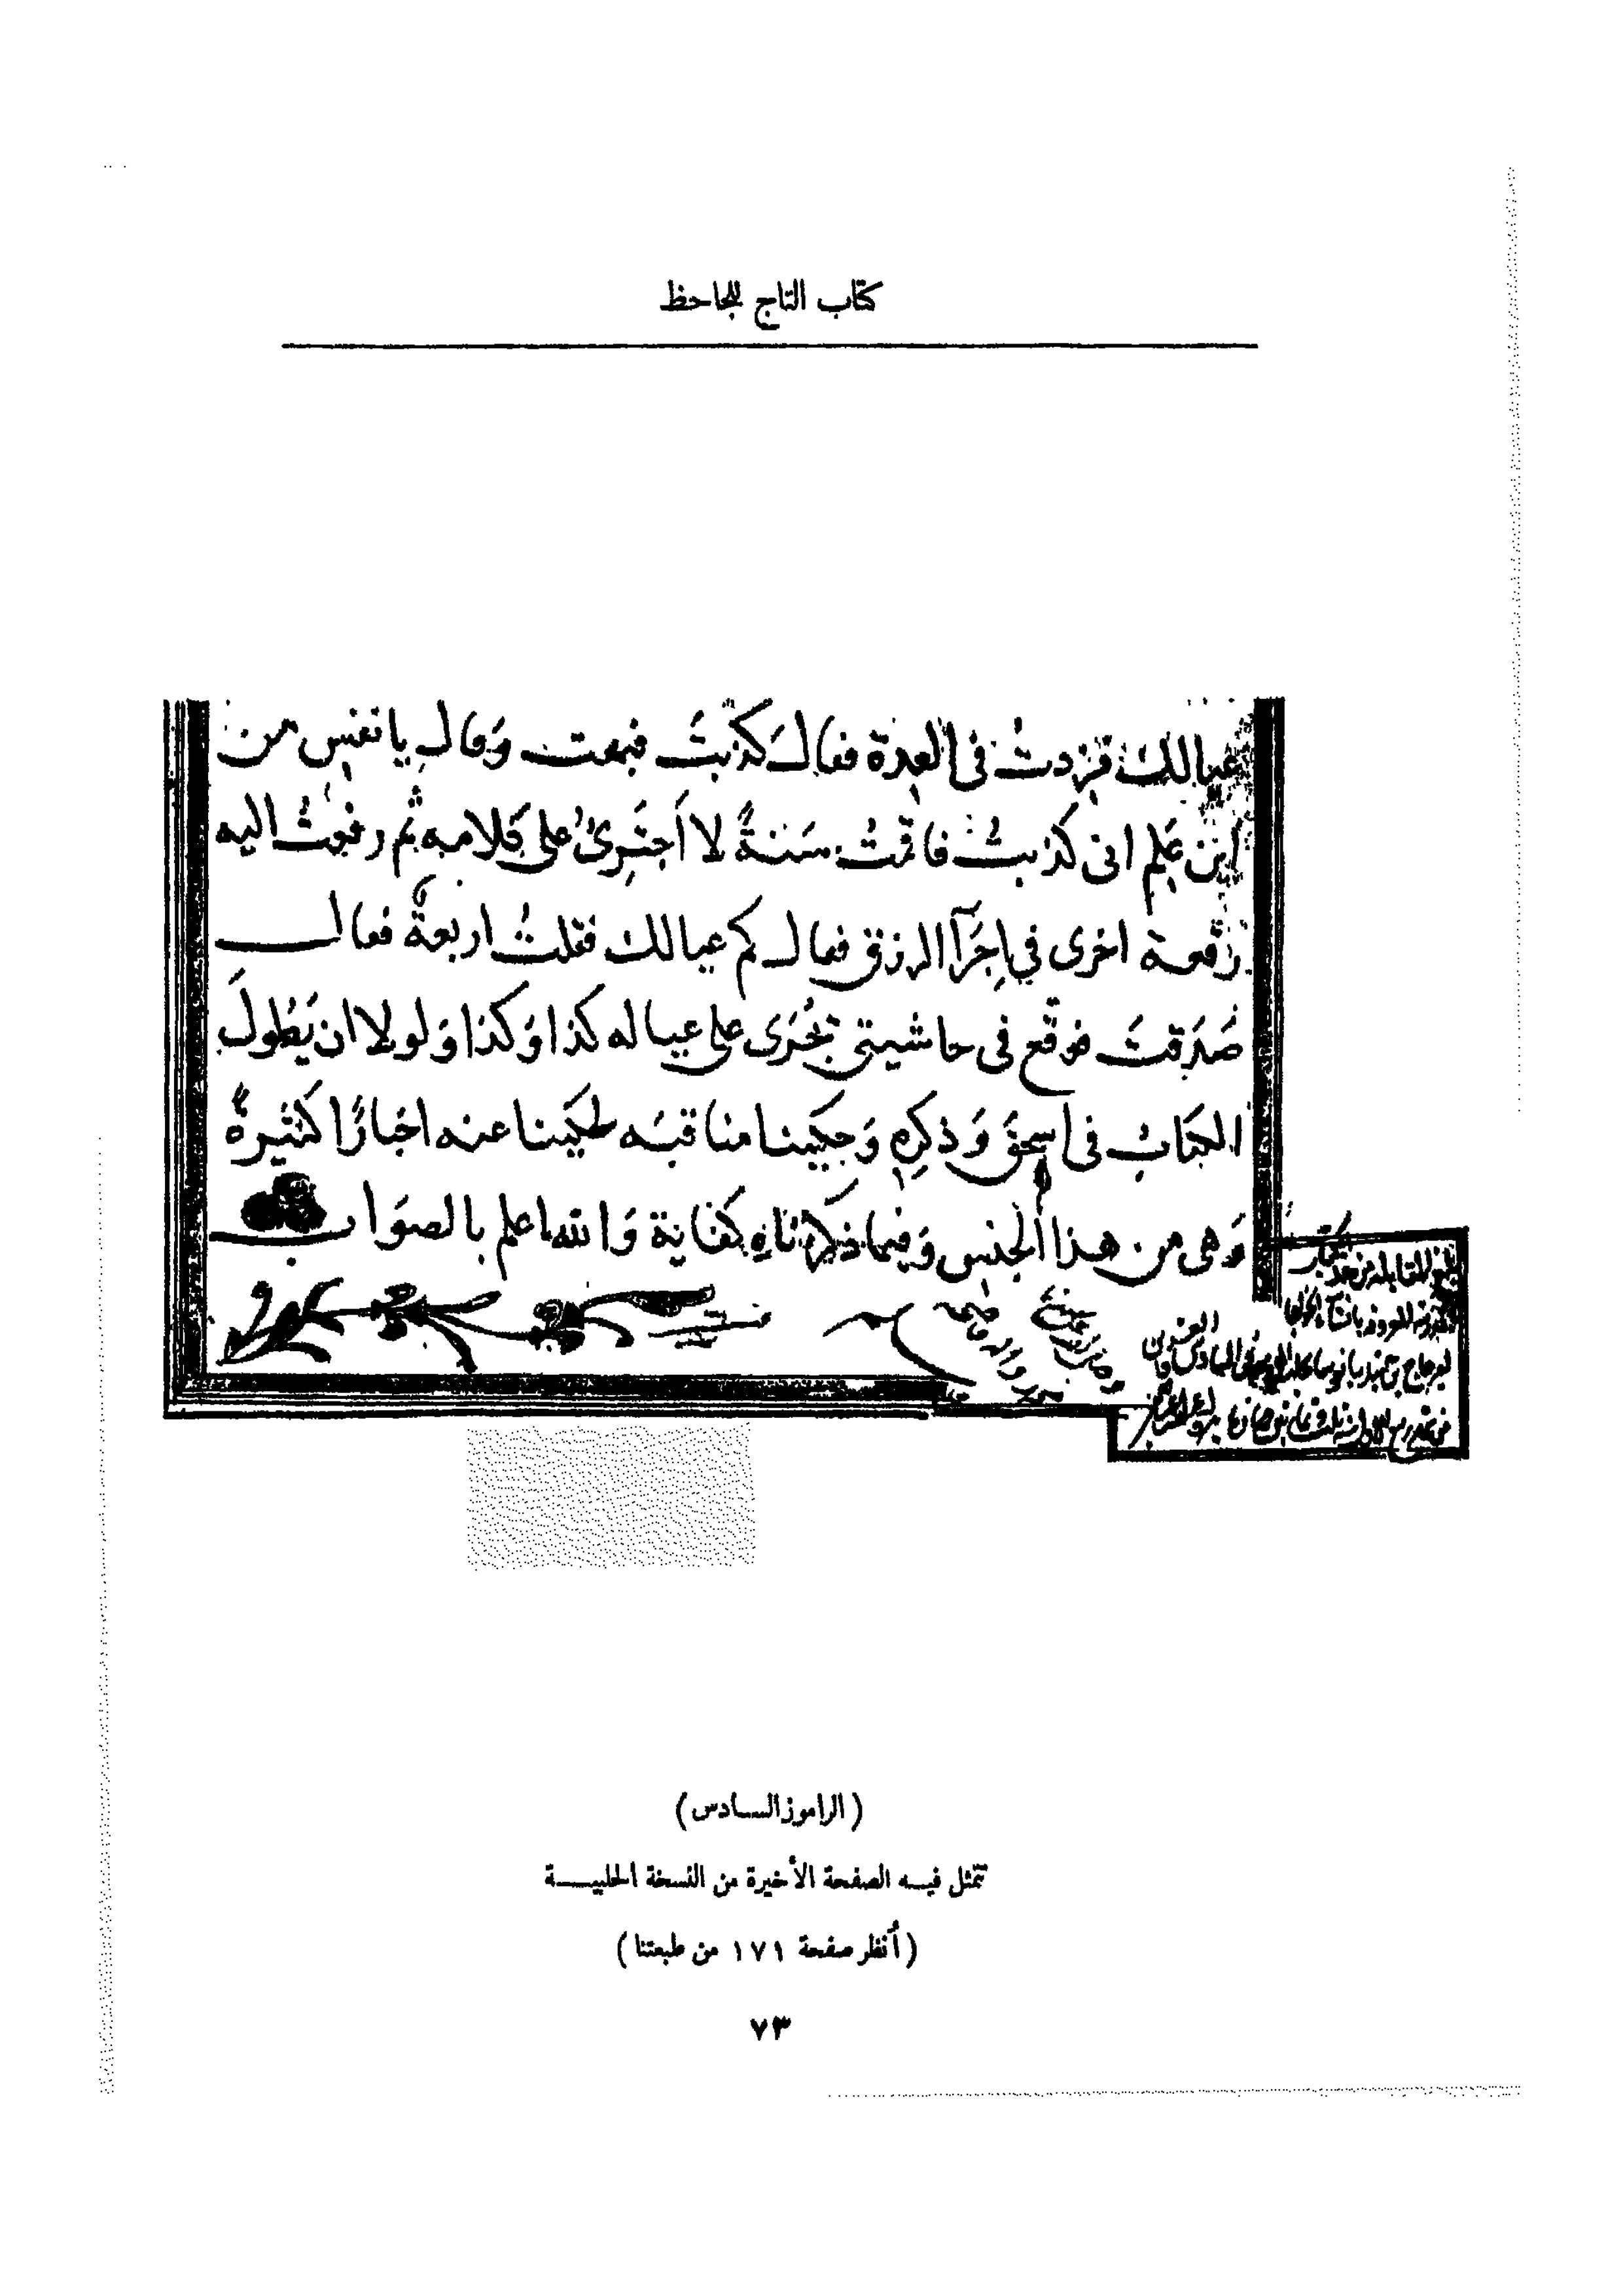 كتاب التاج للجاحظ
عيالك فزدت فى العدة فقالَ كذبتَ فبهت وَقال يا نفسِ من
اين عَلم انى كذبتُ فاقمتُ سَنةً لا أَجتَرِئُ على كلامه ثم رفعتُ اليه
رُقعة اخرى في اِجرَآ الرزق فقال كم عيالك فقلتُ اربعةً فقال
صَدَقتَ فوقّع فى حاشيتى يُجْرَى على عياله كذا وَكذا وَلولا ان يَطُولَ
الكتابُ فى اسحٰق وَذكرِه وَحكينا مناقبَه لحكينا عنه اخبارًا كثيرةً
وَهى من هذا الجنس وَفيما ذكرناه كفاية وَالله اعلم بالصوَاب
(الراموز السادس)
تتمثل فيه الصفحة الأخيرة من النسخة الحلبية
(أنظر صفحة ١٧١ من طبعتنا)
٧٣